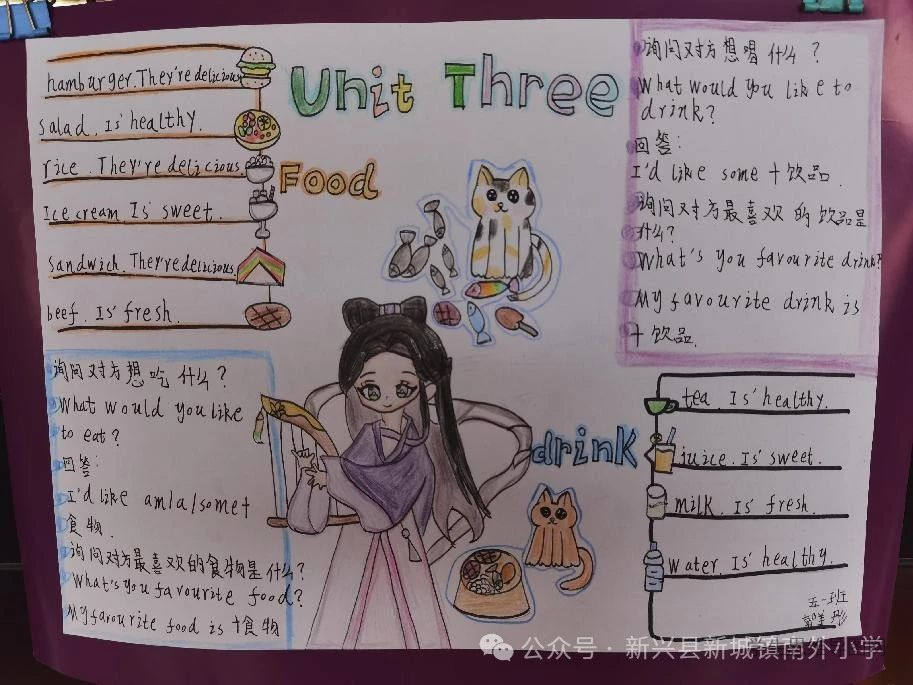 Unit Three
hamburger. They're delicious
salad. Is' healthy.
rice. They're delicious.
Ice cream. Is' sweet.
sandwich. They're delicious.
beef. Is' fresh.
Food
询问对方想喝什么？
What would you like to
drink?
回答：
I'd like some + 饮品.
询问对方最喜欢的饮品是
什么？
What's you favourite drink?
My favourite drink is
+ 饮品.
询问对方想吃什么？
What would you like
to eat?
回答：
I'd like am/a/some+
食物.
询问对方最喜欢的食物是什么？
What's you favourite food?
My favourite food is +食物
drink
tea. Is' healthy.
juice. Is' sweet.
milk. Is' fresh.
water. Is' healthy.
五一班
彤
公众号·新兴县新城镇南外小学